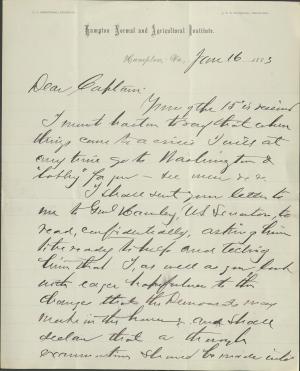 Hampton Normal and Agricultural Institute.
Hampton, Va., Jan 16 1883
Dear Captain:
Yours of the 15th is received
I must hasten to say that when
things come to a crisis I will at
any time go to Washington &
"lobby" for you — see men &c
I shall sent your letter to
me to Genl Hawley, US Senator, to
read, confidentially, asking him
to be ready to help and telling
him that I, as well as you look
with eager hopefulness to the
changes that the Democrats may
make in the &, and shall
declare that a thorough
examination should be made into